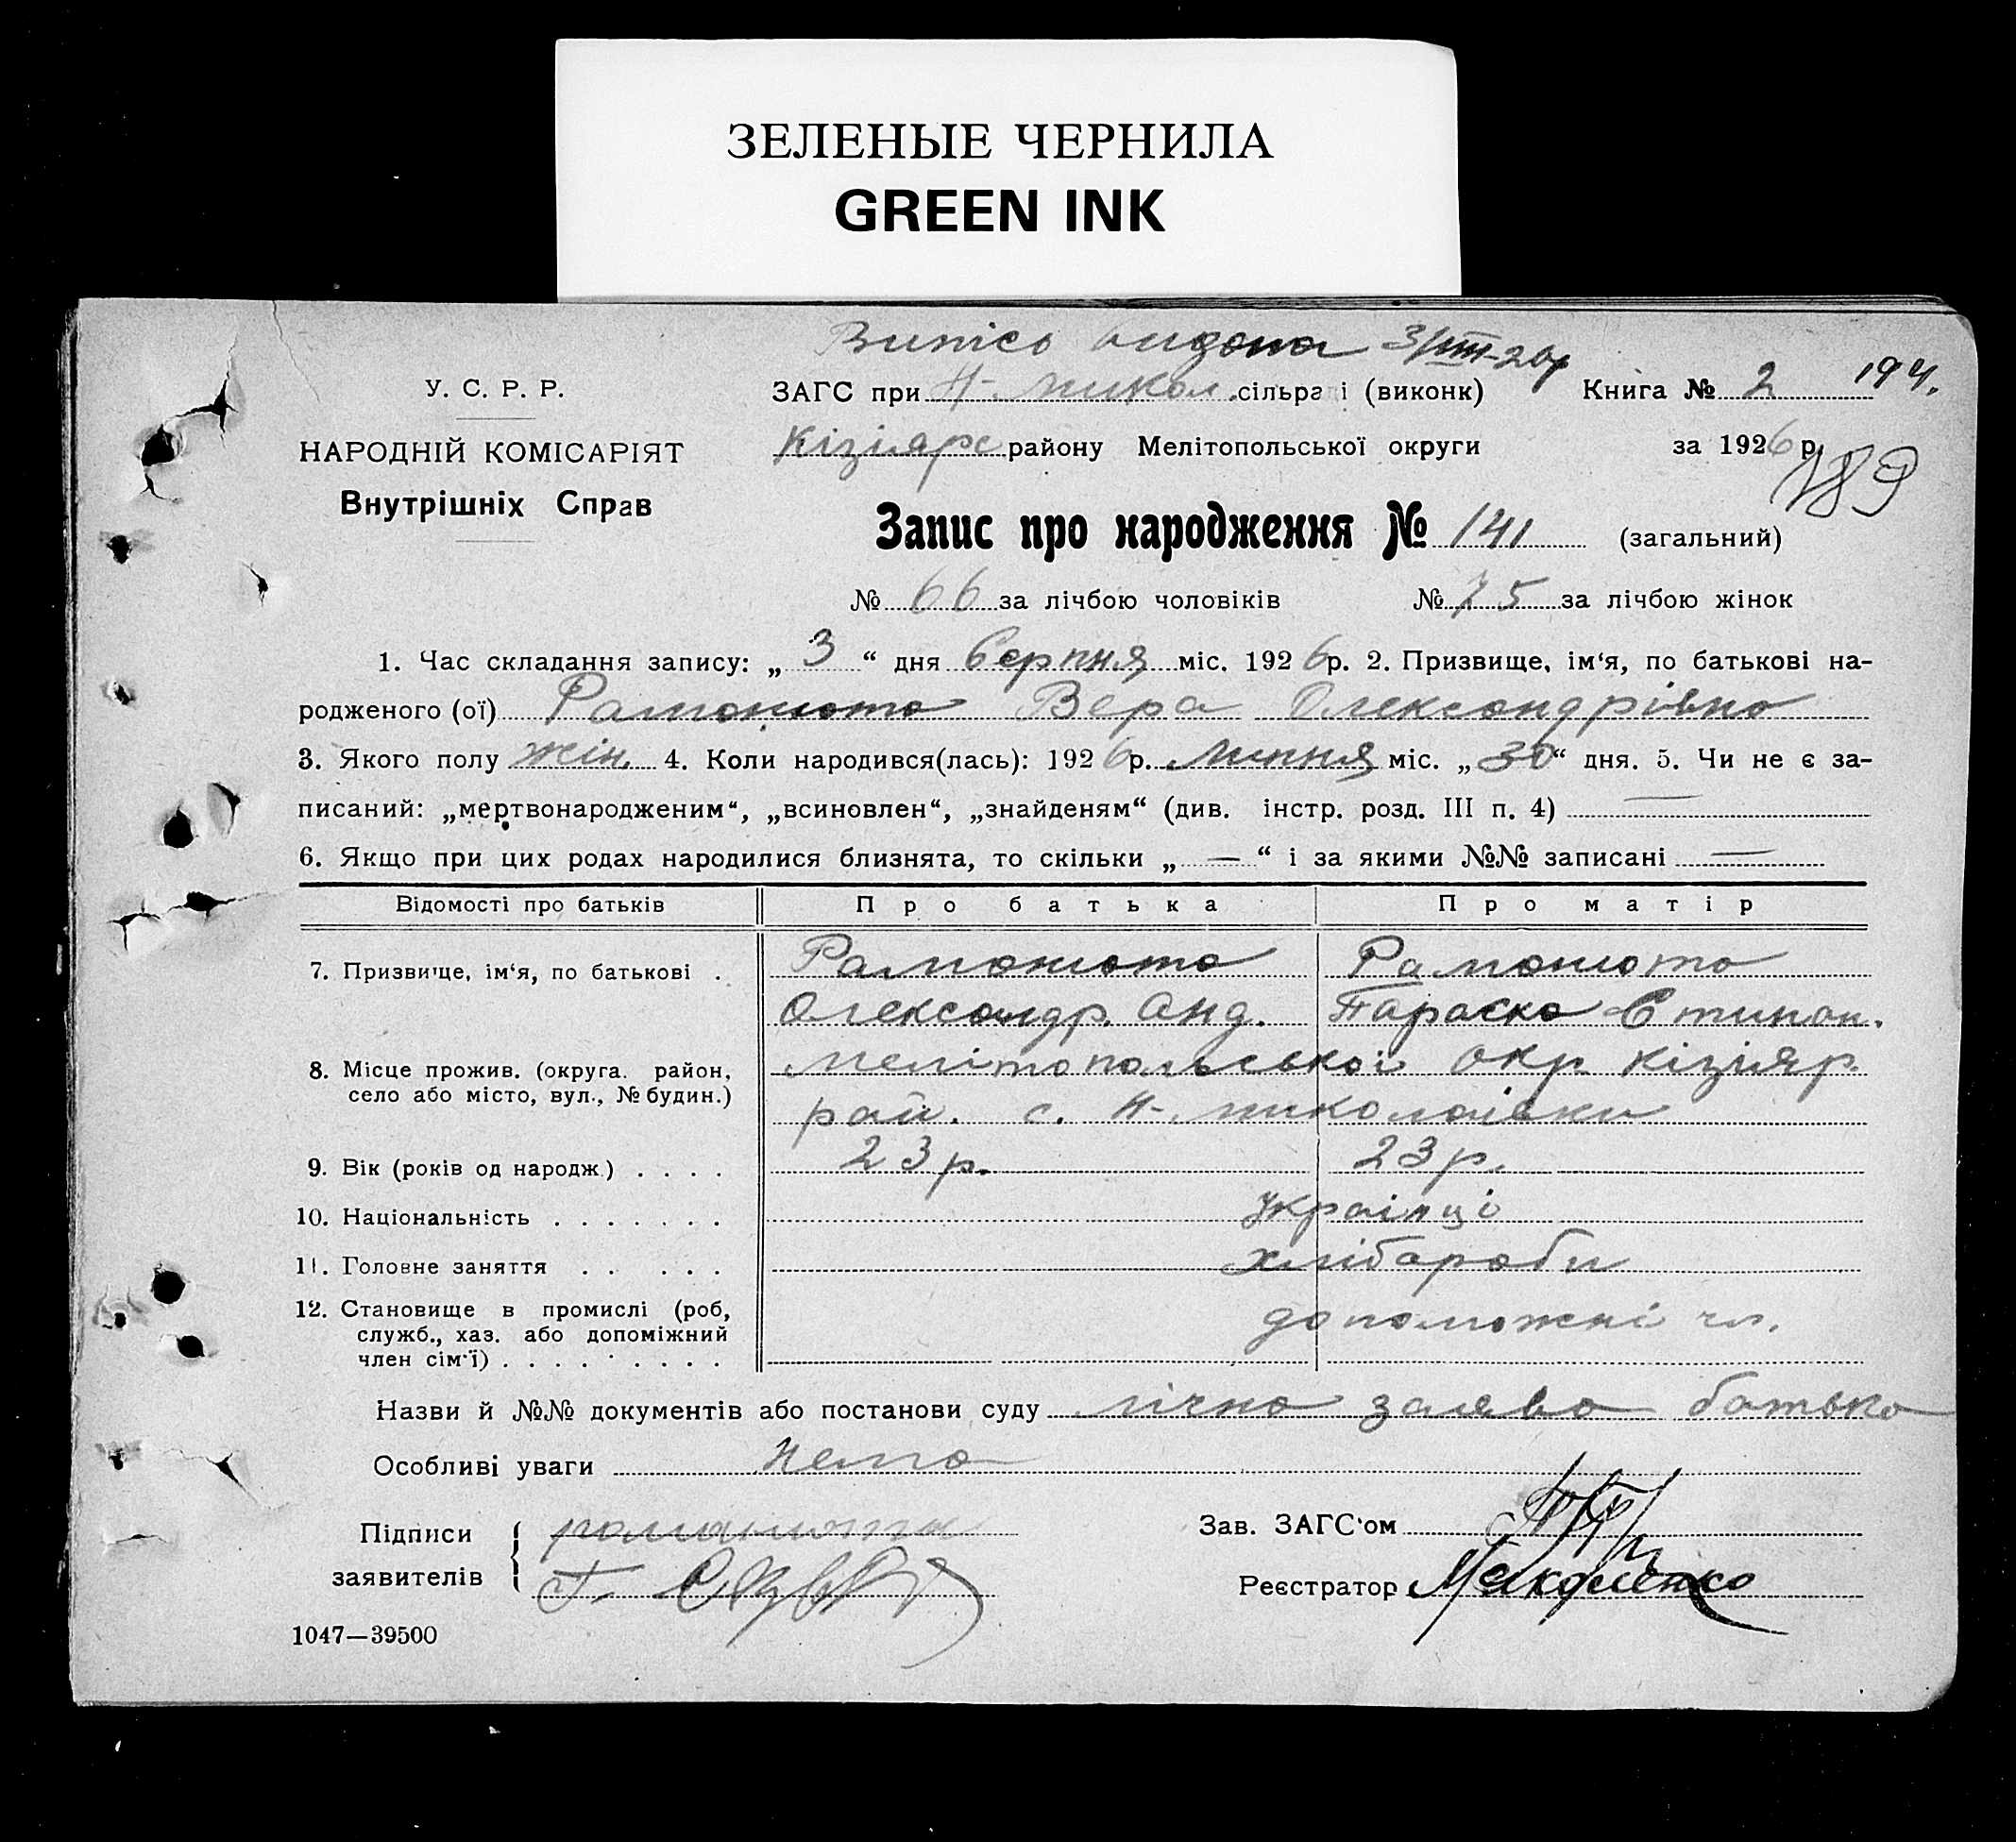 ЗЕЛЕНЫЕ ЧЕРНИЛА
GREEN INK
Випісь видана 3/VIII-26р
194.
У. С. Р. Р.
ЗАГС при Н-Микол. сільраді (виконк) Книга № 2
НАРОДНІЙ КОМІСАРІЯТ
Внутрішніх Справ
Кізіярс району Мелітопольської округи за 1926 р.
189
Запис про народження № 141 (загальний)
№ 66 за лічбою чоловіків № 75 за лічбою жінок
1. Час складання запису: „ 3 “ дня Серпня міс. 1926 р. 2. Призвище, ім‘я, по батькові на-
родженого (ої) Рамонюта Вера Олександрівна
3. Якого полу жін. 4. Коли народився(лась): 1926 р. липня міс. „30“ дня. 5. Чи не є за-
писаний: „мертвонародженим“, „всиновлен“, „знайденям“ (див. інстр. розд. III п. 4) —
6. Якщо при цих родах народилися близнята, то скільки „ — “ і за якими №№ записані —
Відомості про батьків Про батька Про матір
7. Призвище, ім‘я, по батькові . Рамонюта Рамонюта
Олександр. Анд. Параска Стипан.
8. Місце прожив. (округа. район, село або місто, вул., № будин.) Мелітопольської окр. Кізіяр.
рай. с. Н-Миколаївки
9. Вік (років од народж.) . . . . 23 р. 23 р.
10. Національність . . . . . . . Українці
11. Головне заняття . . . . . хлібароби
12. Становище в промислі (роб, служб., хаз. або допоміжний член сім‘ї) . . . . . . . . . допоможні чл.
Назви й №№ документів або постанови суду лічна заява батька
Особливі уваги нема
Підписи заявителів рамонюта
Зав. ЗАГС‘ом
Реєстратор
1047—39500